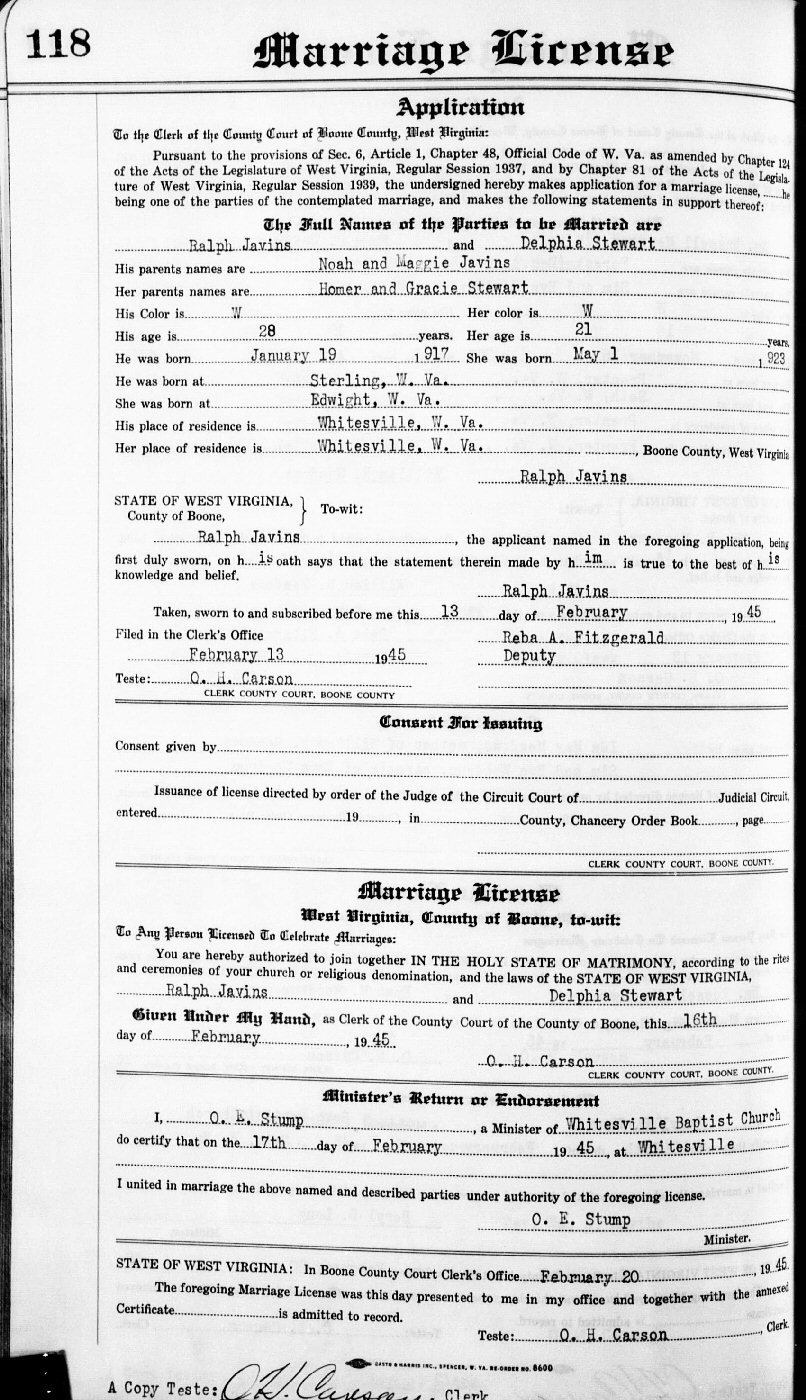 118
Marriage License
Application
To the Clerk of the County Court of Boone County, West Virginia:
Pursuant to the provisions of Sec. 6, Article 1, Chapter 48, Official Code of W. Va. as amended by Chapter 124
of the Acts of the Legislature of West Virginia, Regular Session 1937, and by Chapter 81 of the Acts of the Legisla-
ture of West Virginia, Regular Session 1939, the undersigned hereby makes application for a marriage license, ......he
being one of the parties of the contemplated marriage, and makes the following statements in support thereof:
The Full Names of the Parties to be Married are
Ralph Javins and Delphia Stewart
His parents names are Noah and Maggie Javins
Her parents names are Homer and Gracie Stewart
His Color is W Her color is W
His age is 28 years. Her age is 21 years.
He was born January 19 1917 She was born May 1 1923
He was born at Sterling, W. Va.
She was born at Edwight, W. Va.
His place of residence is Whitesville, W. Va.
Her place of residence is Whitesville, W. Va. , Boone County, West Virginia
Ralph Javins
STATE OF WEST VIRGINIA, } To-wit:
County of Boone,
Ralph Javins , the applicant named in the foregoing application, being
first duly sworn, on his oath says that the statement therein made by him is true to the best of his
knowledge and belief.
Ralph Javins
Taken, sworn to and subscribed before me this 13 day of February , 1945
Filed in the Clerk's Office Reba A. Fitzgerald
February 13 1945 Deputy
Teste: O. H. Carson
CLERK COUNTY COURT, BOONE COUNTY
Consent For Issuing
Consent given by
Issuance of license directed by order of the Judge of the Circuit Court of Judicial Circuit,
entered 19 , in County, Chancery Order Book , page
CLERK COUNTY COURT, BOONE COUNTY.
Marriage License
West Virginia, County of Boone, to-wit:
To Any Person Licensed To Celebrate Marriages:
You are hereby authorized to join together IN THE HOLY STATE OF MATRIMONY, according to the rites
and ceremonies of your church or religious denomination, and the laws of the STATE OF WEST VIRGINIA,
Ralph Javins and Delphia Stewart
Given Under My Hand, as Clerk of the County Court of the County of Boone, this 16th
day of February , 1945
O. H. Carson
CLERK COUNTY COURT, BOONE COUNTY.
Minister's Return or Endorsement
I, O. E. Stump , a Minister of Whitesville Baptist Church
do certify that on the 17th day of February 1945, at Whitesville
I united in marriage the above named and described parties under authority of the foregoing license.
O. E. Stump
Minister.
STATE OF WEST VIRGINIA: In Boone County Court Clerk's Office February 20 , 1945.
The foregoing Marriage License was this day presented to me in my office and together with the annexed
Certificate is admitted to record.
Teste: O. H. Carson , Clerk.
CASTO & HARRIS INC., SPENCER, W. VA. RE-ORDER NO. 8600
A Copy Teste: O. H. Carson, Clerk